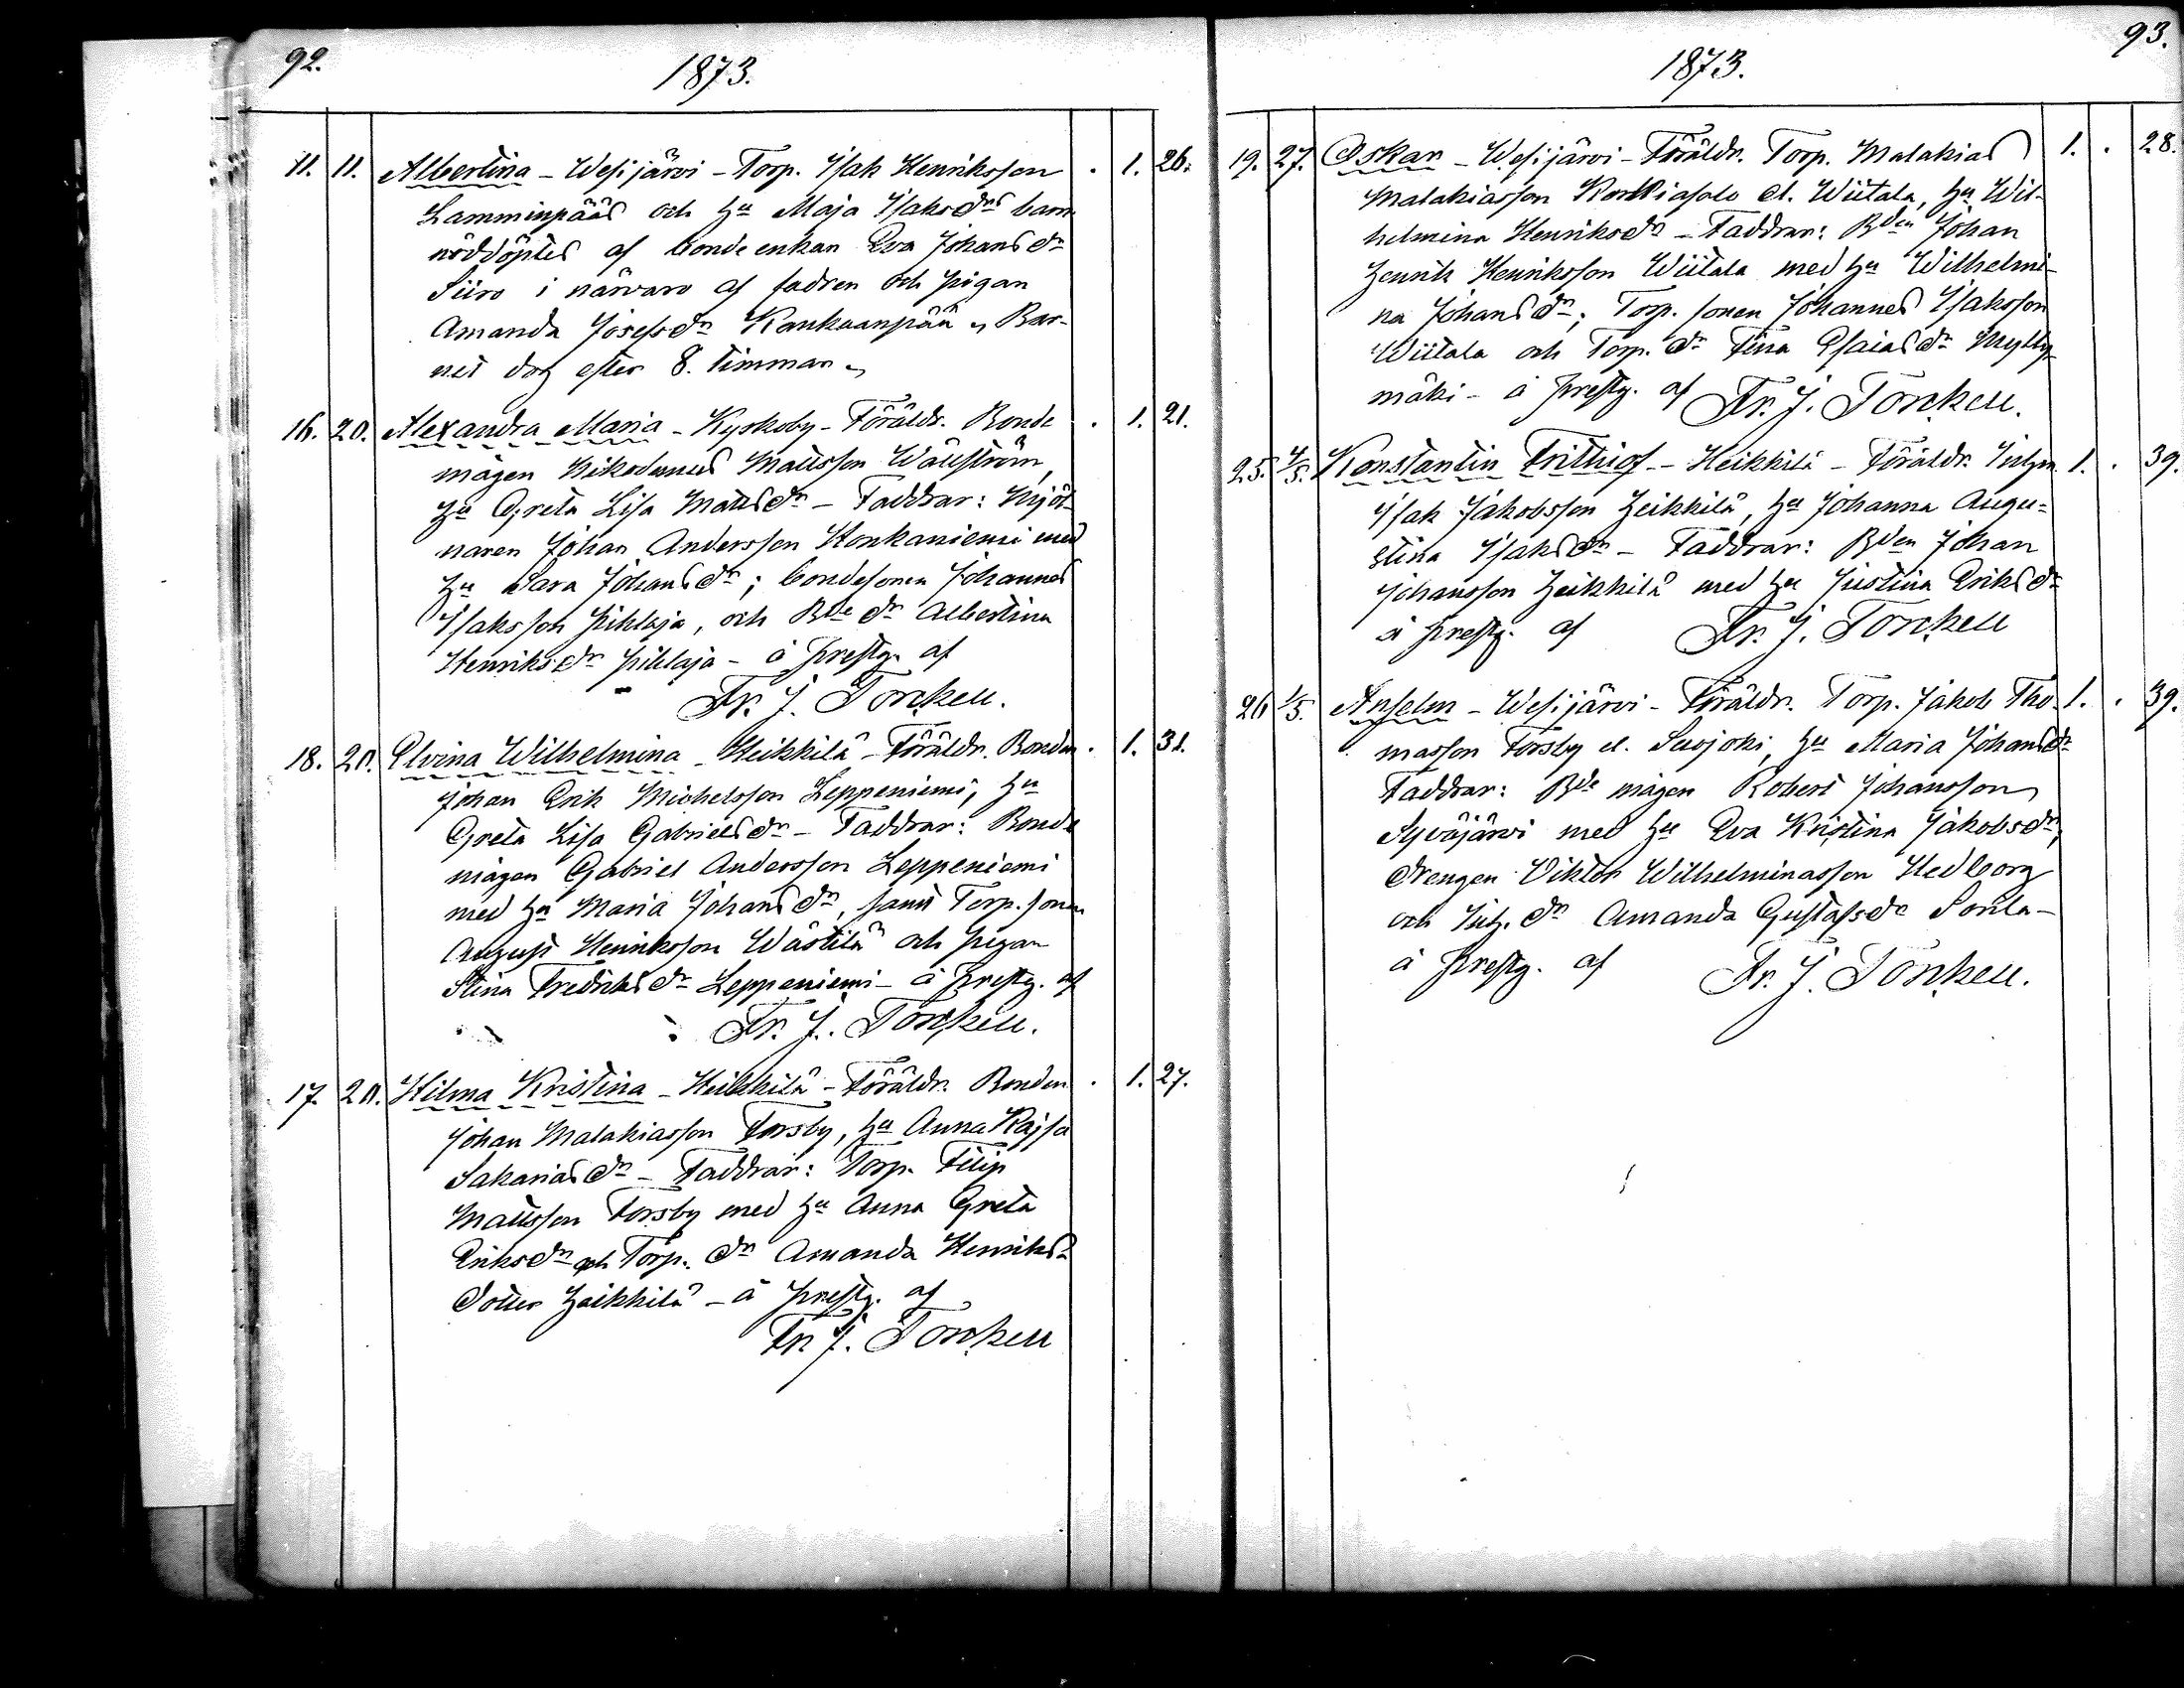 92.
1873.
11. 11. Albertina - Wesijärvi - Torp. Isak Henriksson . 1. 26.
Lamminpääs och Hu Maja Isaksdrs barn
nöddöptes af bonde enkan Eva Johansdr
Siiro i närvaro af fadren och pigan
Amanda Josefsdr Kankaanpää, Bar-
net dog efter 8. timmar
16. 20. Alexandra Maria - Kyrkoby - Föräldr. Bonde . 1. 21.
mågen Nikodemus Mattsson Wällström,
Hu Greta Lisa Mattsdr - Faddrar: Mjöl-
naren Johan Andersson Honkaniemi med
Hu Sara Johansdr; bondesonen Johannes
Isaksson Pihlaja, och Bde dr Albertina
Henriksdr Pihlaja - å prestg. af
Fr. J. Torckell.
18. 20. Elvina Wilhelmina - Heikkilä - Föräldr. Bonden . 1. 31.
Johan Erik Michelsson Leppeniemi, Hu
Greta Lisa Gabrielsdr - Faddrar: Bonde
mågen Gabriel Andersson Leppeniemi
med Hu Maria Johansdr, samt Torp. sonen
August Henriksson Wästilä och pigan
Stina Fredriksdr Leppeniemi - å prestg. af
Fr. J. Torckell.
17. 20. Hilma Kristina - Heikkilä - Föräldr. Bonden . 1. 27.
Johan Malakiasson Forsby, Hu Anna Kajsa
Sakariasdr - Faddrar: Torp. Filip
Mattsson Forsby med Hu Anna Greta
Eriksdr och Torp. dr Amanda Henriks-
dotter Heikkilä - å prestg. af
Fr. J. Torckell
93.
1873.
19. 27. Oskar - Wesijärvi - Föräldr. Torp. Malakias 1. . 28.
Malakiasson Korkiasalo el. Wiitala, Hu Wil-
helmina Henriksdr - Faddrar: Bden Johan
Henrik Henriksson Wiitala med Hu Wilhelmi-
na Johansdr; Torp. sonen Johannes Isaksson
Wiitala och Torp. dr Fina Esaiasdr Mylly-
mäki - å prestg. af Fr. J. Torckell.
25. 4/5. Konstantin Frithiof - Heikkilä - Föräldr. Inhm 1. . 39.
Isak Jakobsson Heikkilä, Hu Johanna Augu-
stina Isaksdr - Faddrar: Bden Johan
Johansson Heikkilä med Hu Justina Eriksdr
å prestg. af Fr. J. Torckell
26 1/5. Anselm - Wesijärvi - Föräldr. Torp. Jakob Tho- 1. . 39.
masson Forsby el. Susjoki, Hu Maria Johansdr
Faddrar: Bde mågen Robert Johansson
Syväjärvi med Hu Eva Kristina Jakobsdr,
drengen Viktor Wilhelminasson Hedborg
och Inh. dr Amanda Gustafsdr Sorila -
å prestg. af Fr. J. Torckell.